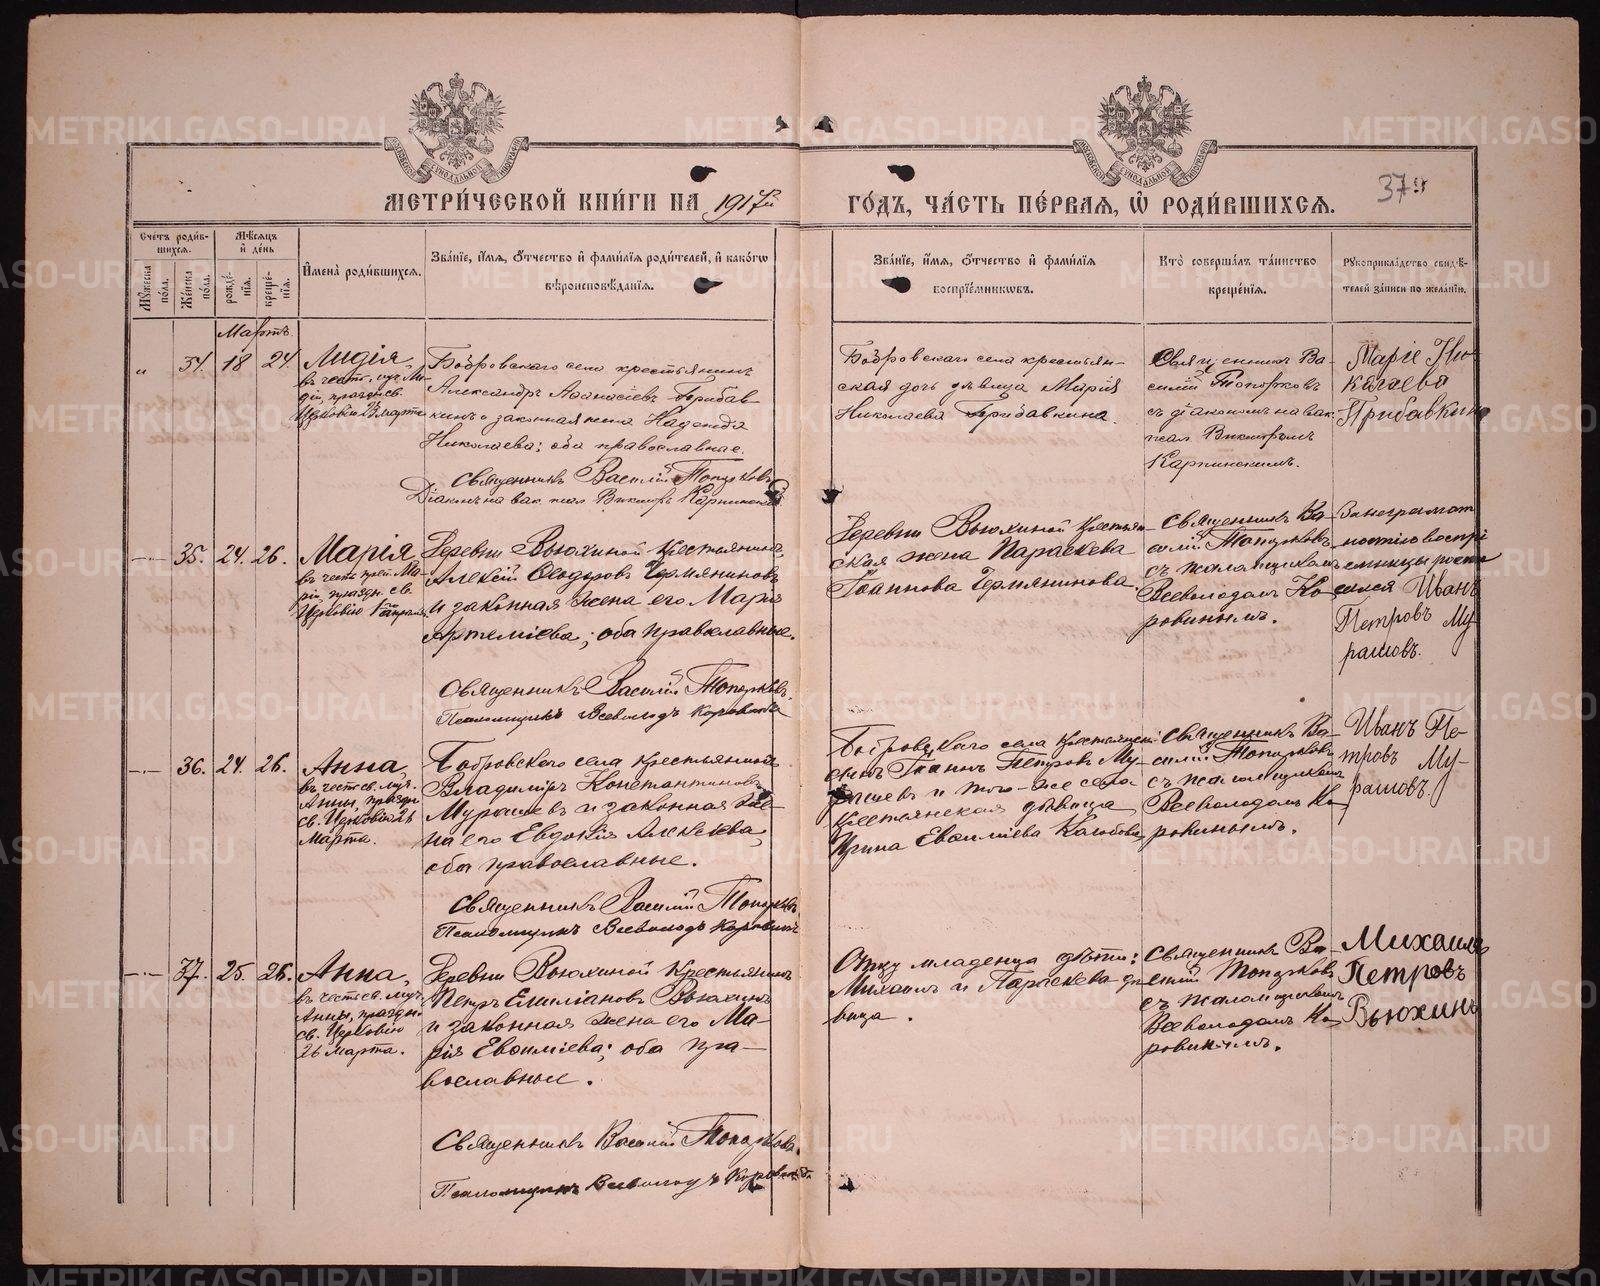 МЕТРИ́ЧЕСКОЙ КНИ́ГИ НА 1917й ГО́ДЪ, ЧА́СТЬ ПЕ́РВАЯ, Ѡ҆ РОДИ́ВШИХСЯ.
37
Счетъ роди́вшихся.
Мѣсяцъ и де́нь
Мꙋжеска по́ла.
Же́нска по́ла.
рожде́нїя.
креще́нїя.
Имена̀ роди́вшихся.
Зва́нїе, и́мя, о́тчество и фами́лїя роди́телей, и како́гѡ вѣроисповѣ́данїя.
Зва́нїе, и́мя, о́тчество и фами́лїя воспрїе́мникѡвъ.
Кто̀ соверша́лъ та́инство креще́нїя.
Рꙋкоприкла́дство свидѣ́телей за́писи по жела́нїю.
Мартъ.
„ 34. 18 24.
Лидія,
въ честь муч. Ли-
діи, праздн. св.
Церковію 23 марта
Бобровскаго села крестьянинъ
Александръ Аѳанасіевъ Прибав-
кинъ и законная жена Надежда
Николаева; оба православные.
Священникъ Василій Топорковъ
Діаконъ на вак. псал. Викторъ Карпинскій
Бобровскаго села крестьян-
ская дочь дѣвица Марія
Николаева Прибавкина.
Священникъ Ва-
силій Топорковъ
съ діакономъ на вак.
псал. Викторомъ
Карпинскимъ.
Маріе Ни-
калаева
Прибавкина
35. 24. 26.
Марія,
въ честь преп. Ма-
ріи, праздн. св.
Церковію 1 апрѣля
Деревни Вьюхиной крестьянинъ
Алексій Ѳеодоровъ Чермяниновъ
и законная жена его Марія
Артеміева; оба православные.
Священникъ Василій Топорковъ.
Псаломщикъ Всеволодъ Коровинъ
Деревни Вьюхиной крестьян-
ская жена Параскева
Іоаннова Чермянинова.
Священникъ Ва-
силій Топорковъ
съ псаломщикомъ
Всеволодомъ Ко-
ровинымъ.
За неграмот
ностію воспрі
емницы роспи
сался Иванъ
Петровъ Му-
рашовъ.
36. 24. 26.
Анна,
въ честь св. муч.
Анны, праздн.
св. Церковію 26
марта.
Бобровскаго села крестьянинъ
Владиміръ Константиновъ
Мурашевъ и законная же-
на его Евдокія Алексѣева,
оба православные.
Священникъ Василій Топорковъ.
Псаломщикъ Всеволодъ Коровинъ
Бобровскаго села крестьянскій
сынъ Іоаннъ Петровъ Му-
рашевъ и того-же села
крестьянская дѣвица
Ирина Евѳиміева
Священникъ Ва-
силій Топорковъ
съ псаломщикомъ
Всеволодомъ Ко-
ровинымъ.
Иванъ Пе-
тровъ Му-
рашовъ.
37. 25. 26.
Анна,
въ честь св. муч.
Анны, праздн.
св. Церковію
26 марта.
Деревни Вьюхиной крестьянинъ
Петръ Емиліановъ Вьюхинъ
и законная жена его Ма-
рія Евѳиміева; оба пра-
вославные.
Священникъ Василій Топорковъ.
Псаломщикъ Всеволодъ Коровинъ.
Отцу младенца дѣти:
Михаилъ и Параскева дѣ-
вица.
Священникъ Ва-
силій Топорковъ
съ псаломщикомъ
Всеволодомъ Ко-
ровинымъ.
Михаилъ
Петровъ
Вьюхинъ
METRIKI.GASO-URAL.RU